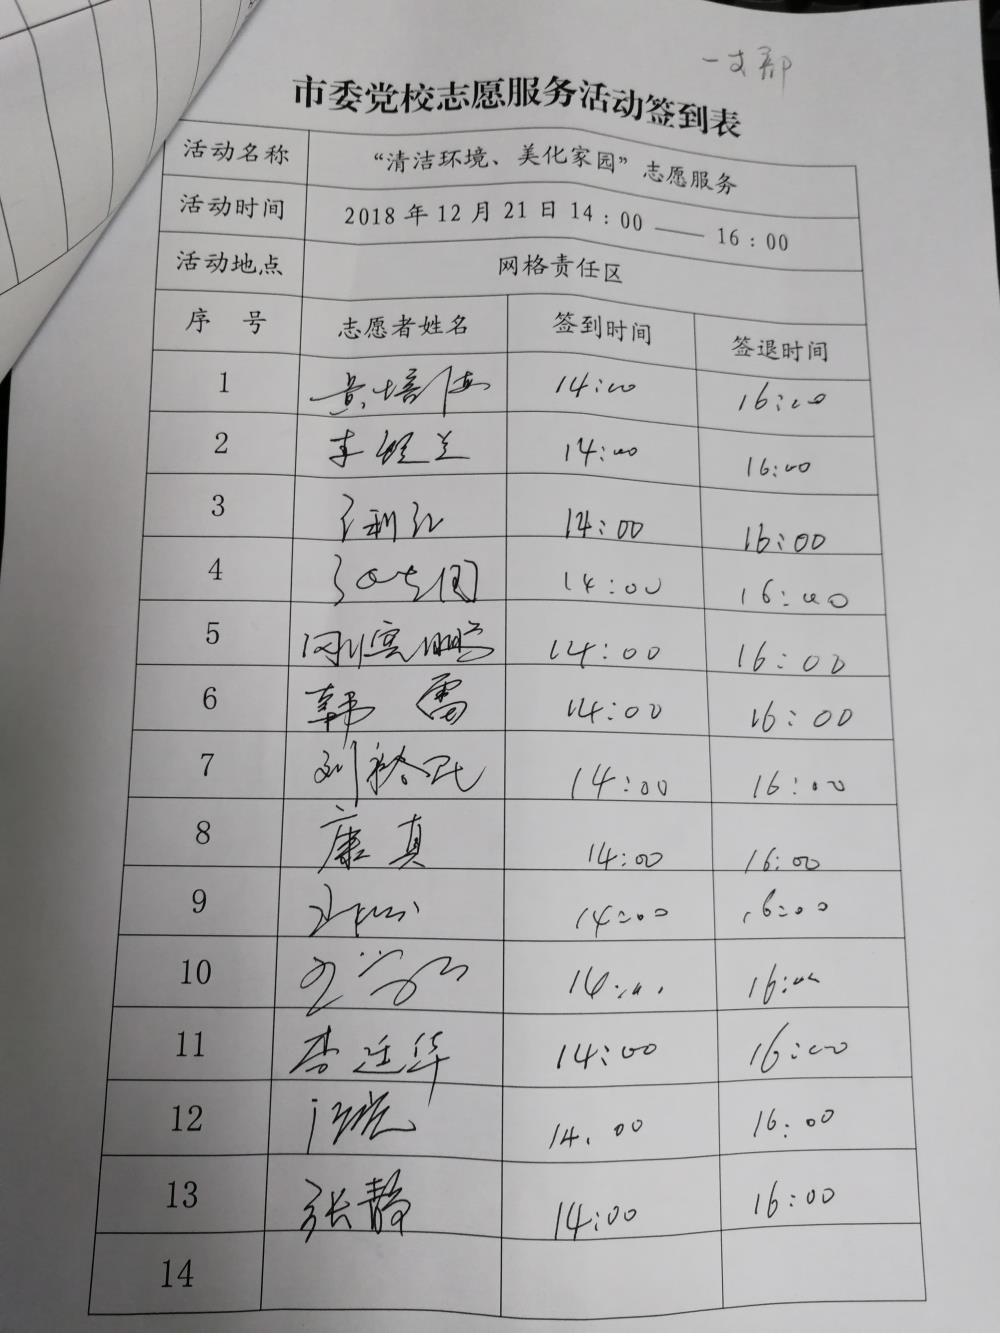 一支部
市委党校志愿服务活动签到表
活动名称 “清洁环境、美化家园”志愿服务
活动时间 2018年12月21日14:00——16:00
活动地点 网格责任区
序 号 志愿者姓名 签到时间 签退时间
1 14:00 16:00
2 14:00 16:00
3 14:00 16:00
4 14:00 16:00
5 14:00 16:00
6 韩雷 14:00 16:00
7 14:00 16:00
8 康真 14:00 16:00
9 14:00 16:00
10 14:00 16:00
11 李廷华 14:00 16:00
12 14.00 16:00
13 张静 14:00 16:00
14